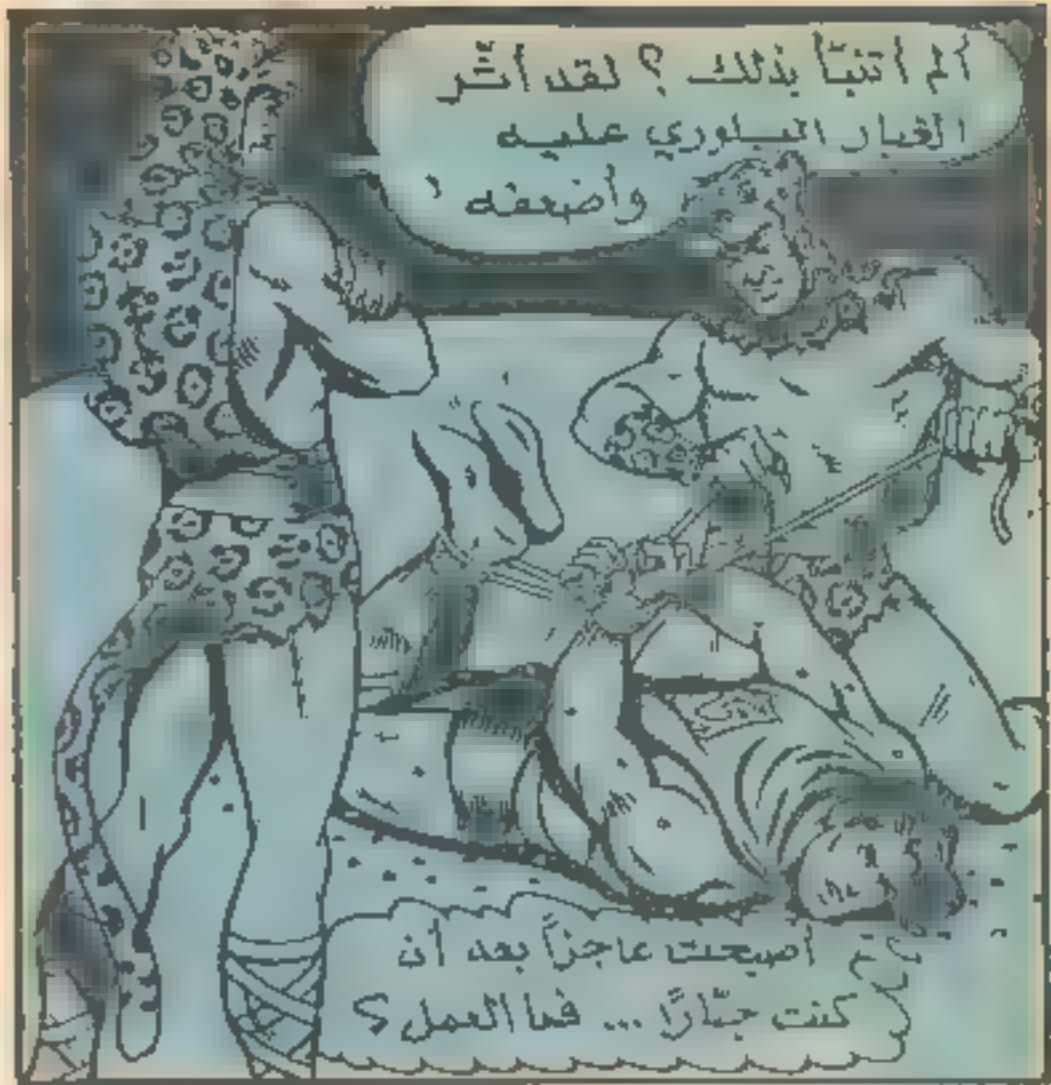 ألم أتنبّأ بذلك ؟ لقد أثّر
الغبار البلوري عليه
وأضعفه !
أصبحت عاجزاً بعد أن
كنت جبّارًا ... فما العمل ؟